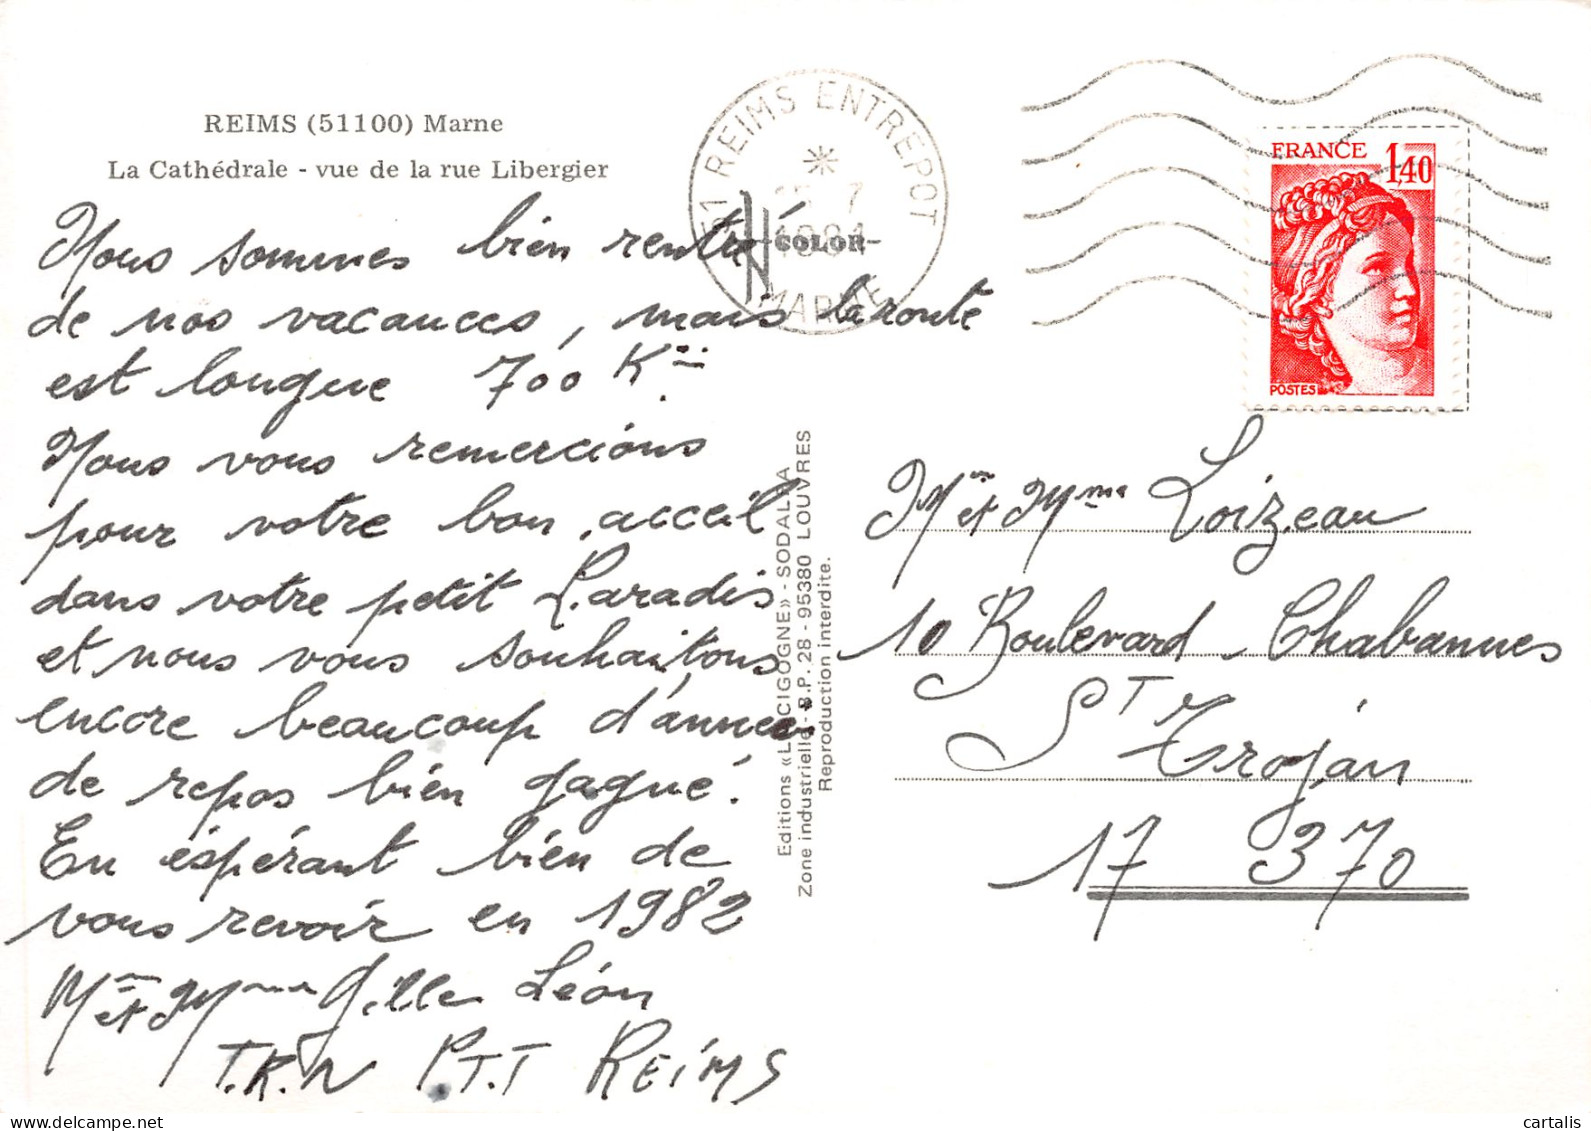 REIMS (51100) Marne
La Cathédrale - vue de la rue Libergier
51 REIMS ENTREPOT
7
1981
MARNE
COLOR
FRANCE 1,40
POSTES
Nous sommes bien rentré
de nos vacances, mais la route
est longue 700 K.
Nous vous remercions
pour votre bon acceil
dans votre petit Paradis
et nous vous souhaitons
encore beaucoup d'années
de repos bien gagné.
En éspérant bien de
vous revoir en 1982
Mr et Mme Gille Léon
P.T.T REiMS
Editions «LA CIGOGNE» - SODALFA
Zone industrielle - B.P. 28 - 95380 LOUVRES
Reproduction interdite.
Mr et Mme Loizeau
10 Boulevard Chabannes
ST Trojan
17 370
cartalis